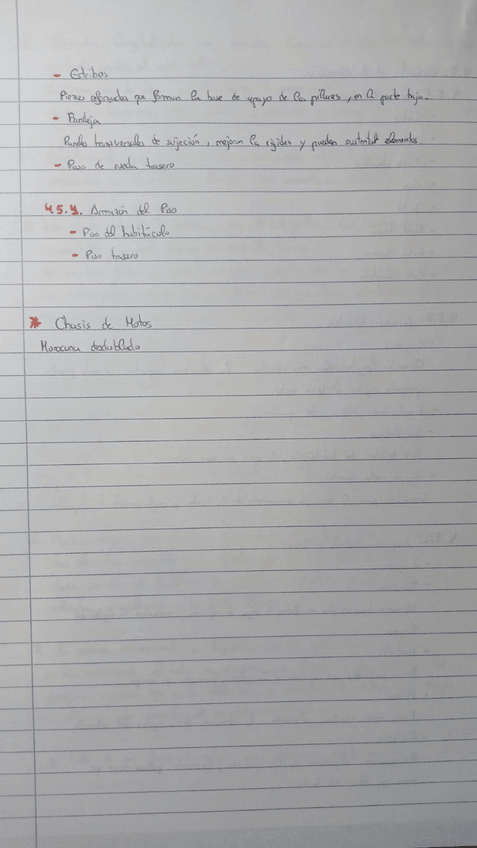 - Estribos
Piezas reforzadas que forman la base de apoyo de los pilares, en la parte baja.
- Bandeja
Paneles transversales de sujeción, mejoran la rigidez y pueden sustentar elementos.
- Paso de rueda trasero
4.5.4. Armazón del Piso
- Piso del habitáculo
- Piso trasero
* Chasis de Motos
Monocuna desdoblado